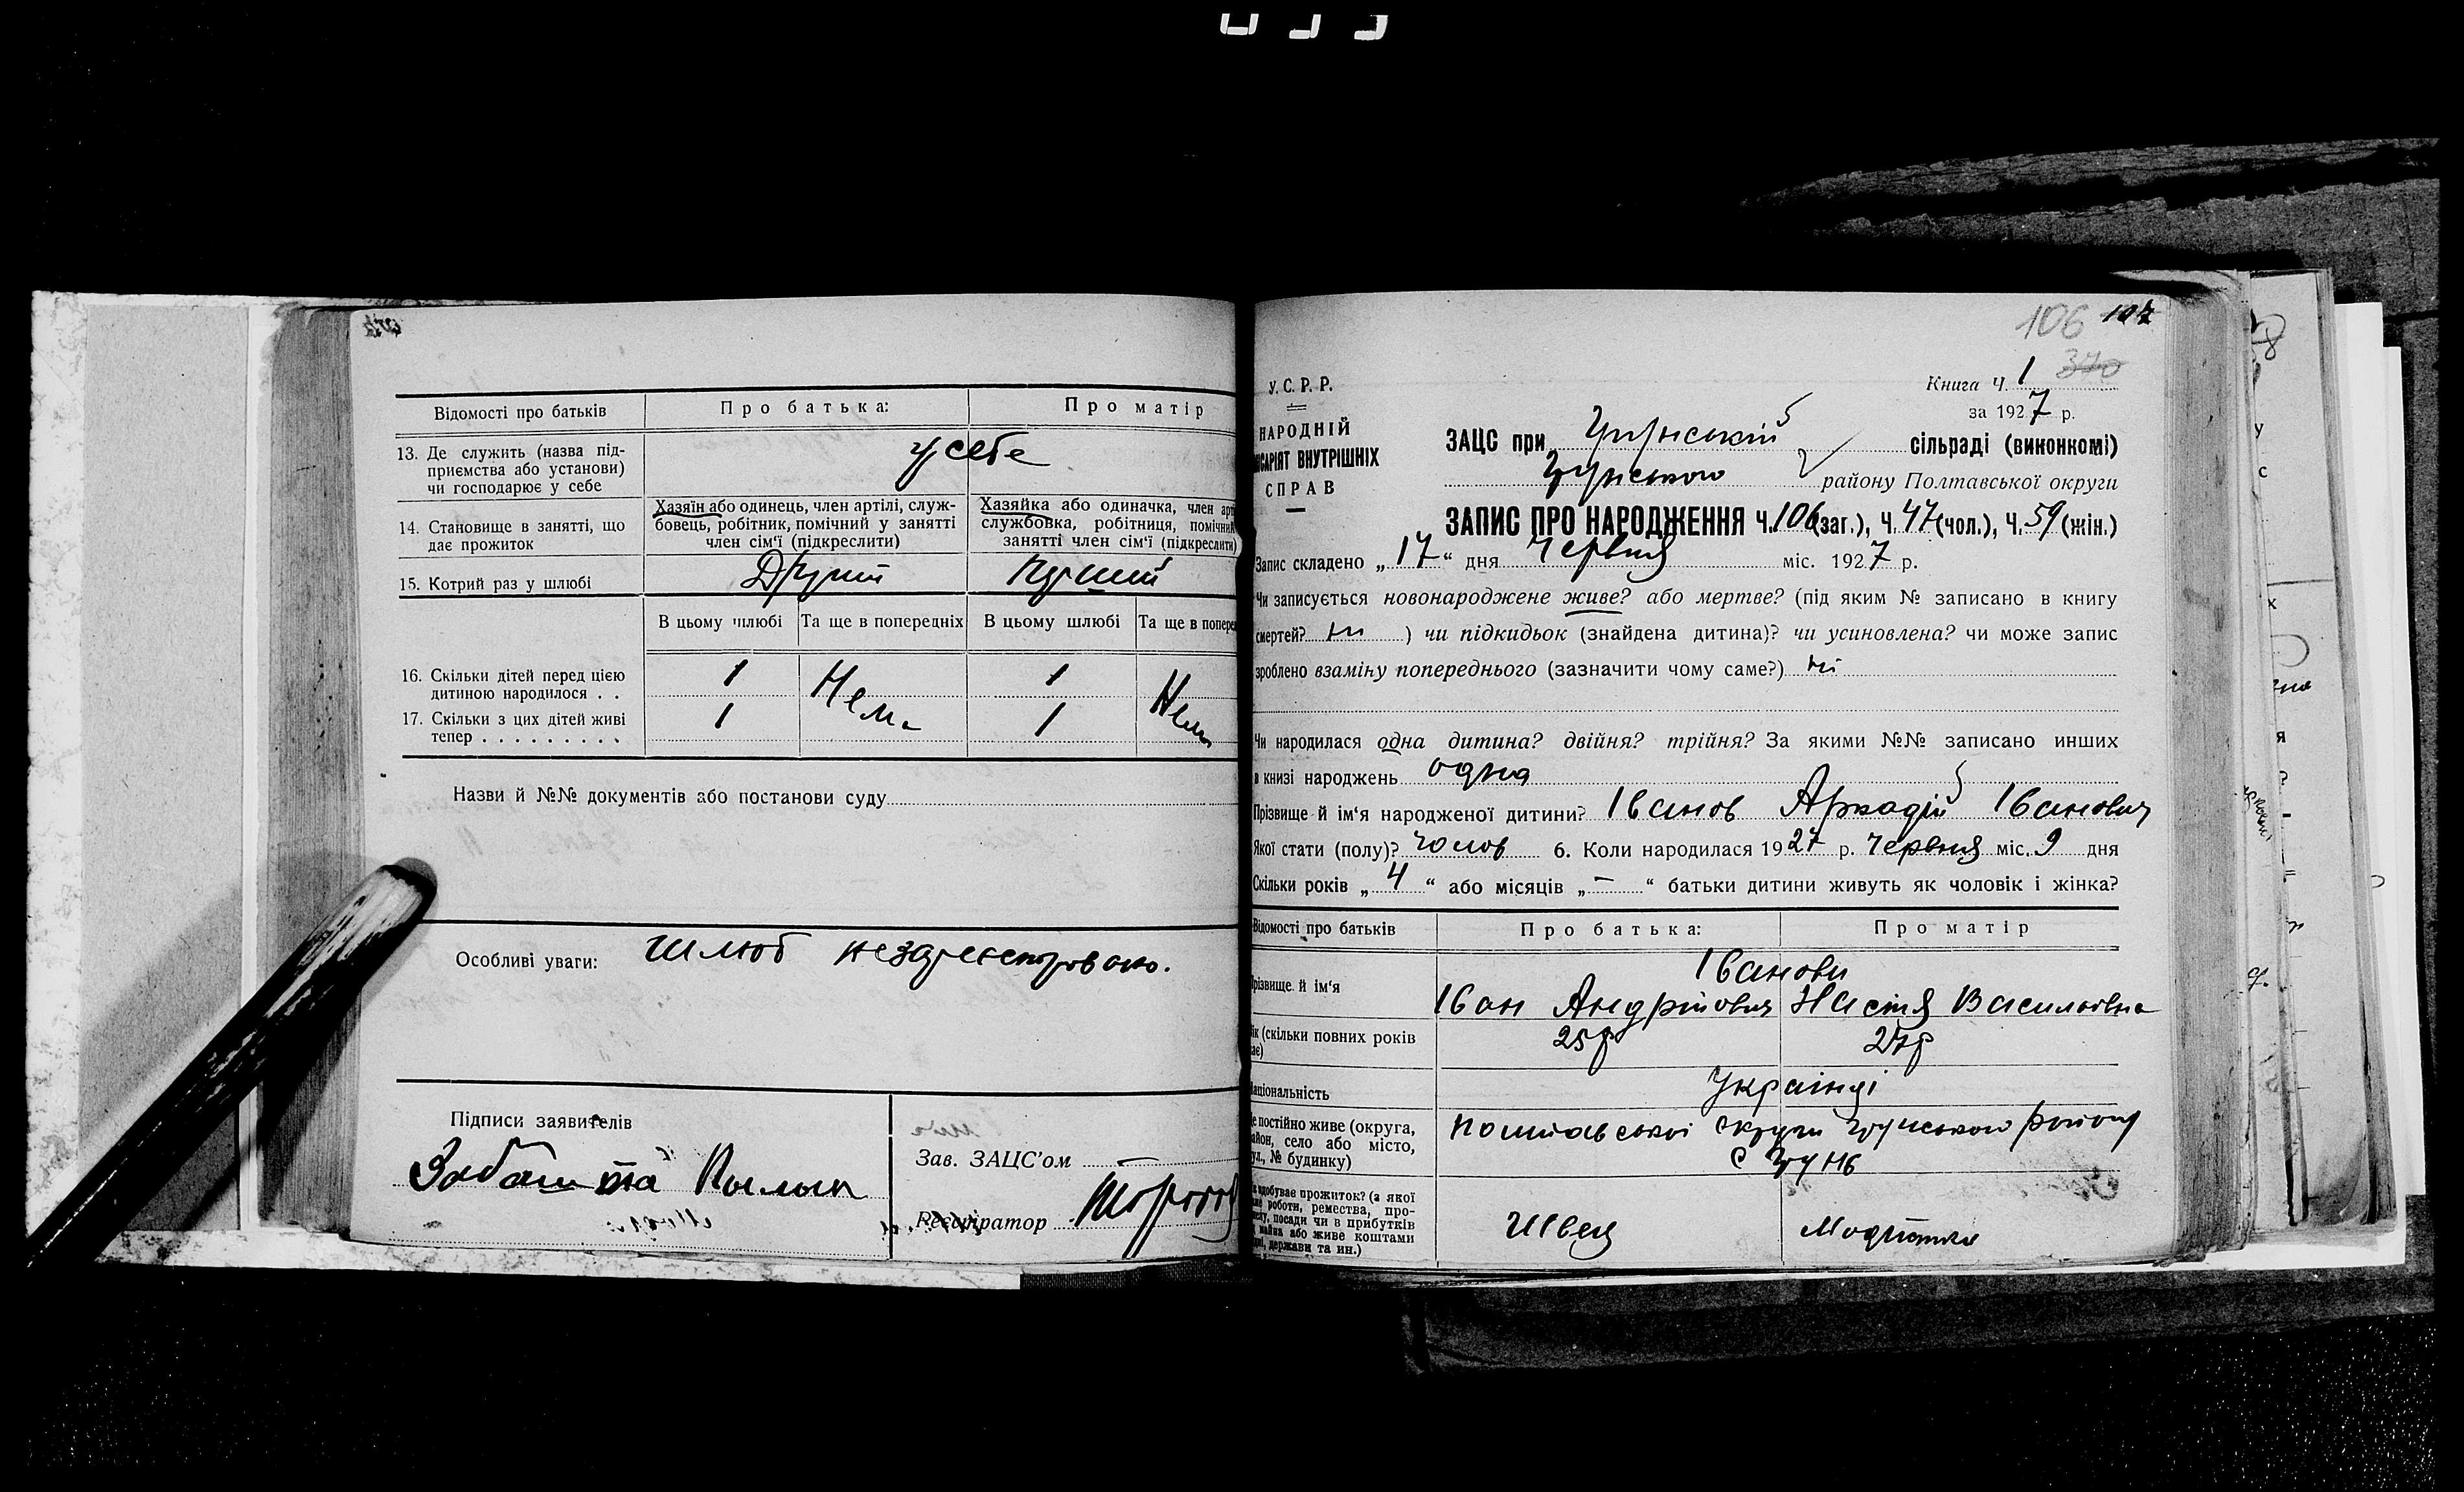 Відомості про батьків
Про батька:
Про матір
13. Де служить (назва під-
приємства або установи)
чи господарює у себе
у себе
14. Становище в занятті, що
дає прожиток
Хазяїн або одинець, член артілі, служ-
бовець, робітник, помічний у занятті
член сім'ї (підкреслити)
Хазяйка або одиначка, член арті
службовка, робітниця, помічний
занятті член сім'ї (підкреслити)
15. Котрий раз у шлюбі
Другий
Перший
В цьому шлюбі
Та ще в попередніх
В цьому шлюбі
Та ще в попере
16. Скільки дітей перед цією
дитиною народилося . .
1
Нема
1
Нема
17. Скільки з цих дітей живі
тепер . . . . . . . . .
1
1
Назви й №№ документів або постанови суду
Особливі уваги: Шлюб незареєстровано.
Підписи заявителів
Зав. ЗАЦС'ом
Реєстратор
106
370
У. С. Р. Р.
НАРОДНІЙ
ІСАРІЯТ ВНУТРІШНІХ
СПРАВ
Книга Ч. 1
за 1927 р.
ЗАЦС при Грунській сільраді (виконкомі)
Грунського району Полтавської округи
ЗАПИС ПРО НАРОДЖЕННЯ Ч. 106 (заг.), Ч. 47 (чол.), Ч. 59 (жін.)
Запис складено „17“ дня Червня міс. 1927 р.
Чи записується новонароджене живе? або мертве? (під яким № записано в книгу
смертей? ні ) чи підкидьок (знайдена дитина)? чи усиновлена? чи може запис
зроблено взаміну попереднього (зазначити чому саме?) ні
Чи народилася одна дитина? двійня? трійня? За якими №№ записано инших
в книзі народжень одна
Прізвище й ім'я народженої дитини? Іванов Аркадій Іванович
Якої стати (полу)? чолов 6. Коли народилася 1927 р. Червня міс. 9 дня
Скільки років „4“ або місяців „–“ батьки дитини живуть як чоловік і жінка?
Відомості про батьків
Про батька:
Про матір
Іванови
різвище й ім'я
Іван Андрійович
Настя Василівна
ік (скільки повних років
ає)
25 р
27 р
аціональність
Українці
е постійно живе (округа,
айон, село або місто,
ул., № будинку)
Полтавської округи Грунського району
с Грунь
к здобуває прожиток? (з якої
аме роботи, ремества, про-
мислу, посади чи в прибутків
майна або живе коштами
ції, держави та ин.)
Швець
Модистка